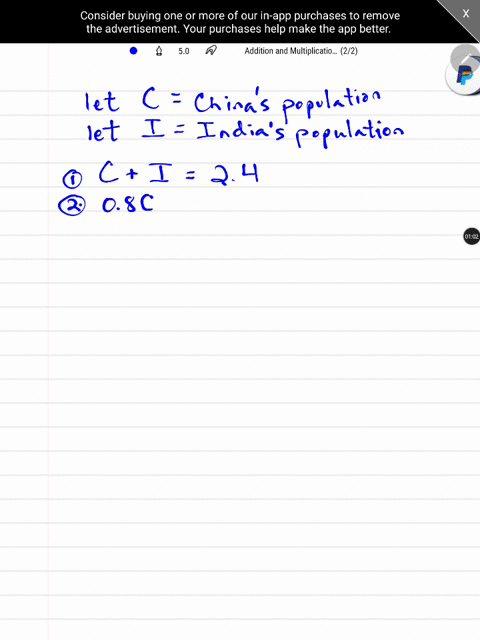 Consider buying one or more of our in-app purchases to remove
the advertisement. Your purchases help make the app better.
X
5.0 Addition and Multiplicatio... (2/2)
let C = China's population
let I = India's population
① C + I = 2.4
②. 0.8C
01:02